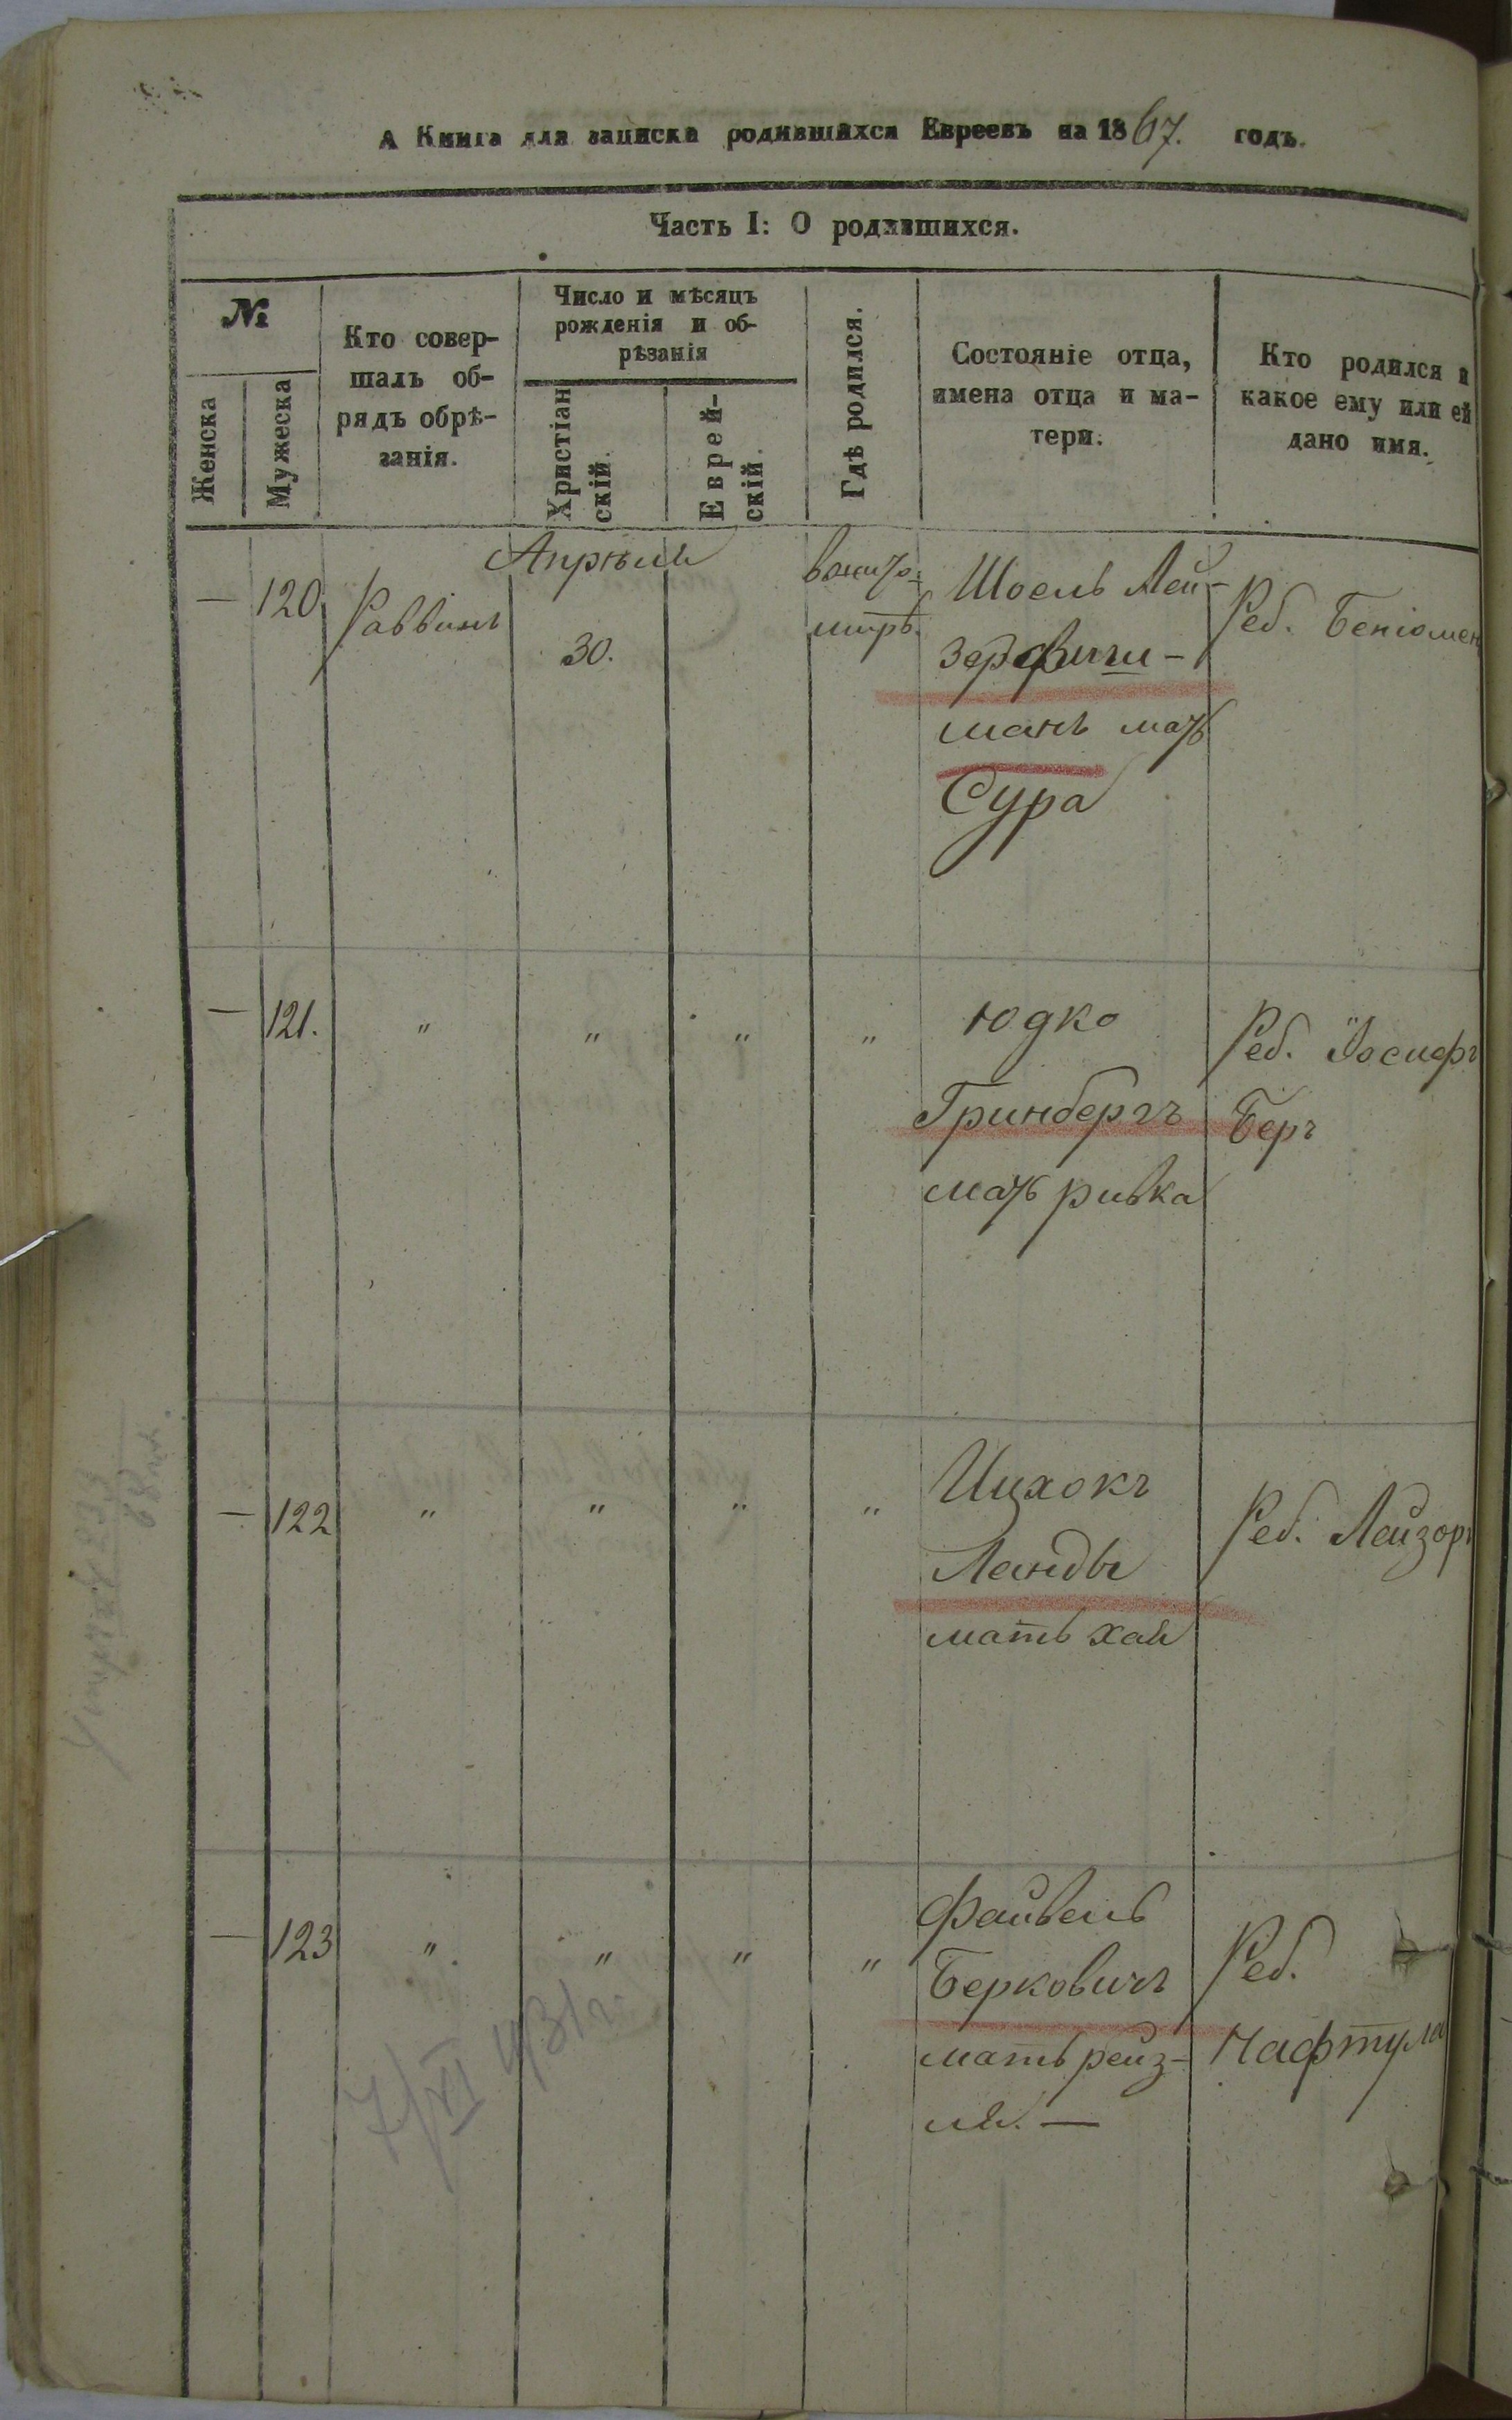 А Книга для записки родившихся Евреевъ на 1867. годъ.
Часть I: О родившихся.
№
Женска
Мужеска
Кто совер-
шалъ об-
рядъ обрѣ-
занія.
Число и мѣсяцъ
рожденія и об-
рѣзанія
Христіан
скій.
Еврей-
скій.
Гдѣ родился.
Состояніе отца,
имена отца и ма-
тери.
Кто родился и
какое ему или ей
дано имя.
Апрѣля
— 120 Раввинъ 30.
мирѣ.
Шоель Лей-
зер
манъ мать
Сура
Реб. Беніомен
— 121. " " " "
Юдко
Гринбергъ
мать ривка
Реб. Іосифъ
Беръ
— 122 " " " "
Ицхокъ
Ланды
мать хая
Реб. Лейзоръ
— 123 " " " "
Файвель
Берковичъ
мать рейз-
ля. —
Реб.
Нафтула